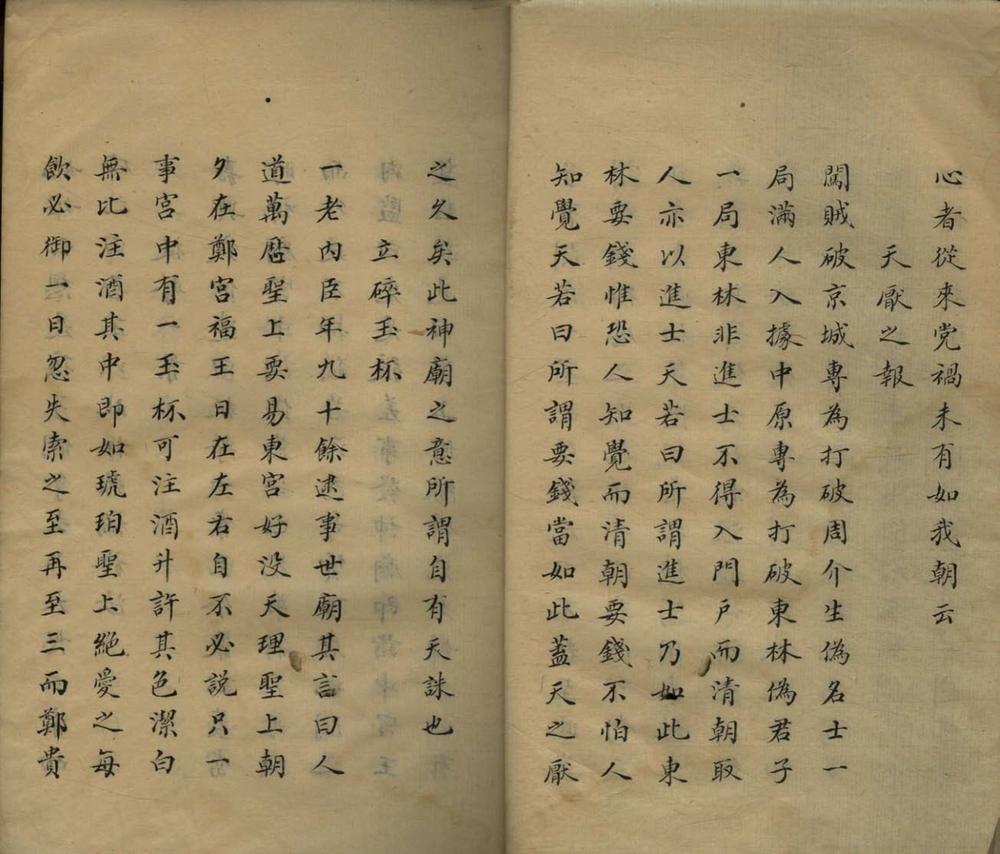 心者從來党禍未有如我朝云
天厭之報
闖賊破京城專為打破周介生偽名士一
局滿人入據中原專為打破東林偽君子
一局東林非進士不得入門戶而清朝取
人亦以進士天若曰所謂進士乃如此東
林要錢惟恐人知覺而清朝要錢不怕人
知覺天若曰所謂要錢當如此蓋天之厭
之久矣此神廟之意所謂自有天誅也
立碎玉杯
一老內臣年九十餘逮事世廟其言曰人
道萬厯聖上要易東宮好没天理聖上朝
夕在鄭宮福王日在左右自不必説只一
事宮中有一玉杯可注酒升許其色潔白
無比注酒其中即如琥珀聖上絕愛之每
飲必御一日忽失索之至再至三而鄭貴